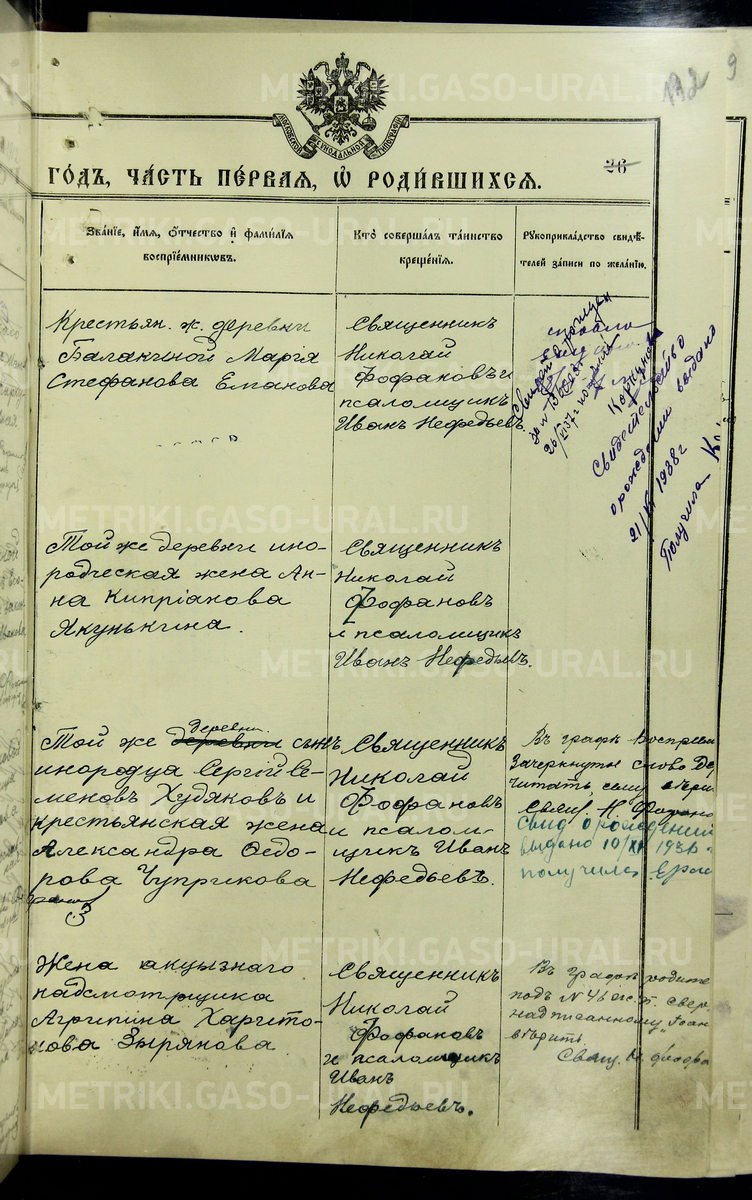 METRIKI.GASO-URAL.RU
192
9
МОСКОВСКОЙ СѴНОДАЛЬНОЙ ТИПОГРАФІИ
26
ГОДЪ, ЧАСТЬ ПЕРВАЯ, Ѽ РОДИВШИХСЯ.
Званіе, имя, отчество и фамилія
воспріемниковъ.
Кто совершалъ таинство
крещенія.
Рукоприкладство свидѣ-
телей записи по желанію.
Крестьян. ж. деревни
Балакиной Марія
Стефанова Еманова
Священникъ
Николай
Фофановъ и
псаломщикъ
Иванъ Нефедьевъ.
Свидетельство
о рождении выдано
21/ 1938 г
Получила
Той же деревни ино-
родческая жена Ан-
на Кипріанова
Якунькина.
Священникъ
Николай
Фофановъ
и псаломщикъ
Иванъ Нефедьевъ.
Той же деревни деревни сынъ
инородца Сергій Се-
меновъ Худяковъ и
крестьянская жена
Александра Ѳедо-
рова Чуприкова
3
Священникъ
Николай
Фофановъ
и псалом-
щикъ Иванъ
Нефедьевъ.
Въ графѣ Воспрiем
Зачеркнуто слово Де
Читать сему вѣри
Свящ. Н. Фофано
свид о рождении
выдано 10/XI 193
получила
Жена акцызнаго
надсмотрщика
Агрипина Харито-
нова Зырянова
Священникъ
Николай
Фофановъ
и псаломщикъ
Иванъ
Нефедьевъ.
Въ графѣ родите
подъ N 46
надписанному Іоан
вѣрить.
Свящ. Н. Фофа